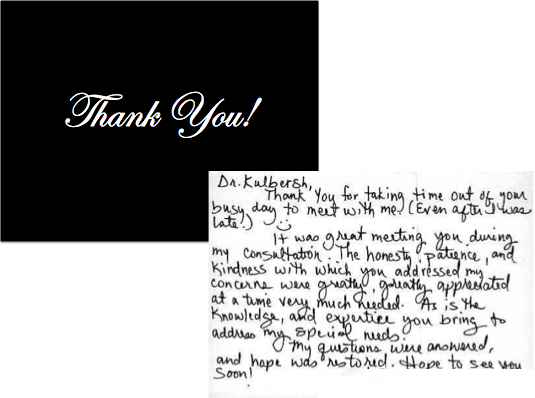 Thank You!
Dr. Kulbersh,
Thank You for taking time out of your
busy day to meet with me. (Even after I was
late!) :)
It was great meeting you during
my consultation. The honesty, patience, and
kindness with which you addressed my
concerns were greatly, greatly appreciated
at a time very much needed. As is the
knowledge, and expertice you bring to
address my special needs.
My questions were answered,
and hope was restored. Hope to see you
Soon!